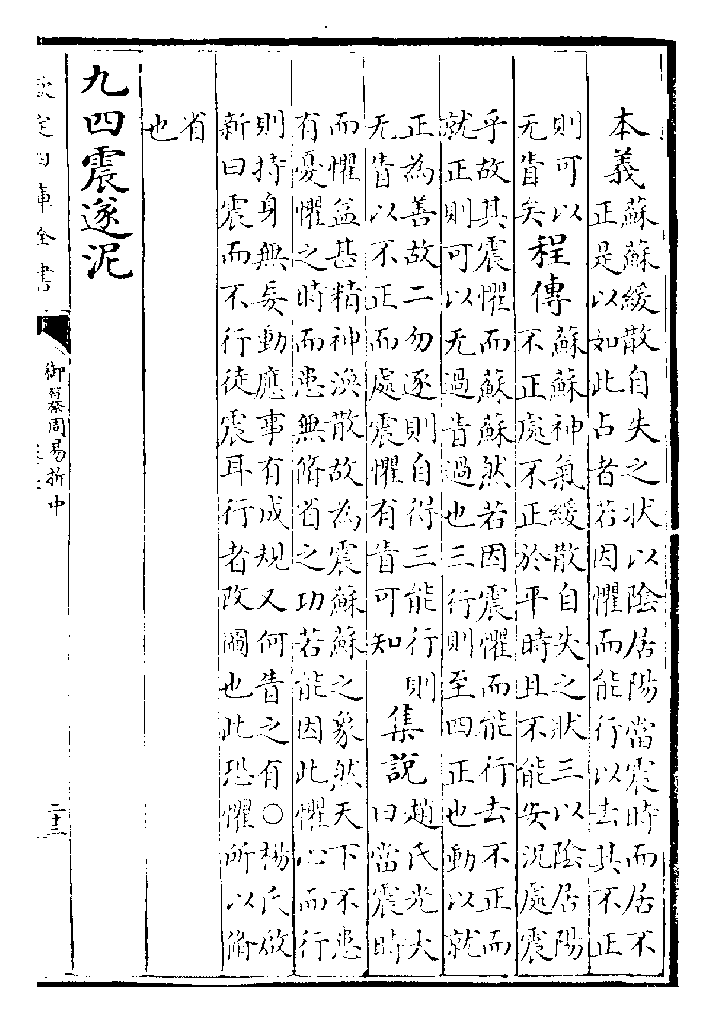 本義
蘇蘇緩散自失之狀以陰居陽當震時而居不
正是以如此占者若因懼而能行以去其不正
則可以
无眚矣
程傳
蘇蘇神氣緩散自失之狀三以陰居陽
不正處不正於平時且不能安況處震
乎故其震懼而蘇蘇然若因震懼而能行去不正而
就正則可以无過眚過也三行則至四正也動以就
正為善故二勿逐則自得三能行則
无眚以不正而處震懼有眚可知
集說
趙氏光大
曰當震時
而懼益甚精神渙散故為震蘇蘇之象然天下不患
有憂懼之時而患無脩省之功若能因此懼心而行
則持身無妄動應事有成規又何眚之有○楊氏啟
新曰震而不行徒震耳行者改圖也此恐懼所以脩
省
也
九四震遂泥
欽定四庫全書
御纂周易折中
二十三